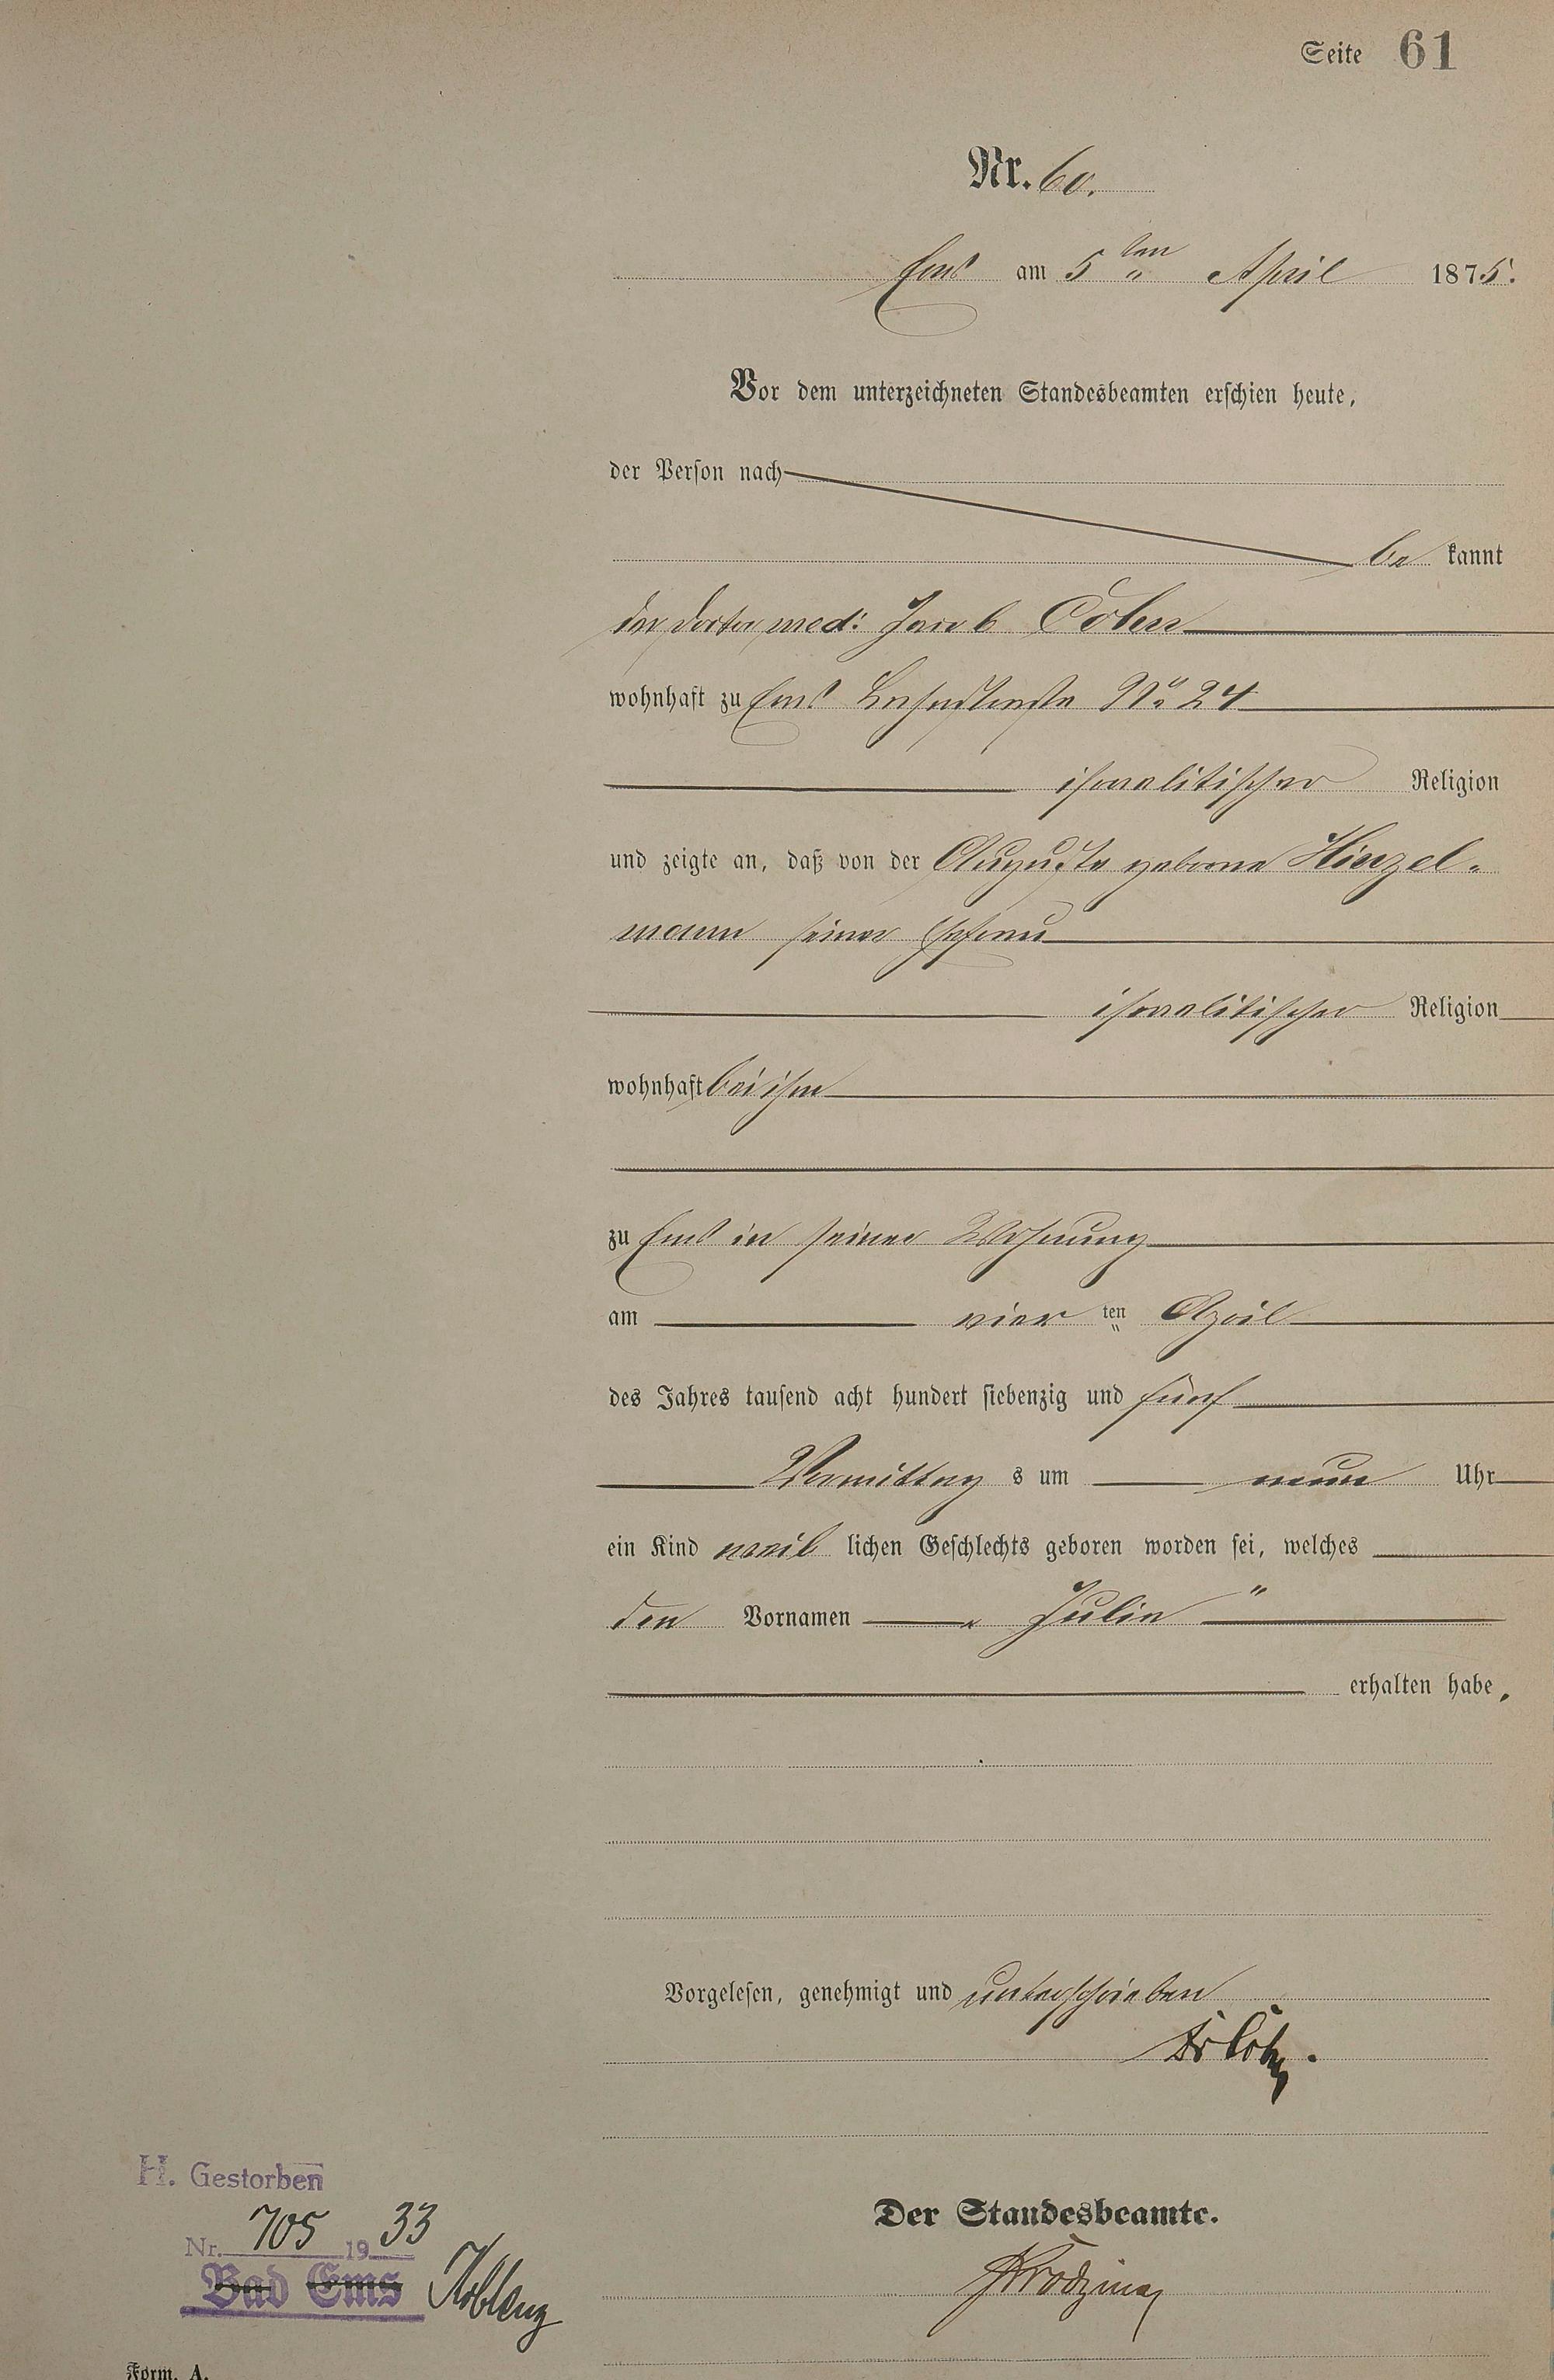 Seite 61
Nr. 60.
Ems am 5ten April 1875.
Vor dem unterzeichneten Standesbeamten erschien heute,
der Person nach
be kannt
der Doctor med: Jacob Cohn
wohnhaft zu Ems No 24
israelitischer Religion
und zeigte an, daß von der Auguste geborne Hinzel-
mann seiner Ehefrau
israelitischer Religion
wohnhaft bei ihm
zu Ems in seiner Wohnung
am vier ten April
des Jahres tausend acht hundert siebenzig und fünf
Vormittag s um neun Uhr
ein Kind weib lichen Geschlechts geboren worden sei, welches
den Vornamen „Julie"
erhalten habe.
Vorgelesen, genehmigt und unterschrieben
Dr Cohn.
Der Standesbeamte.
H. Gestorben
Nr. 705 1933
Bad Ems Koblenz
Form. A.